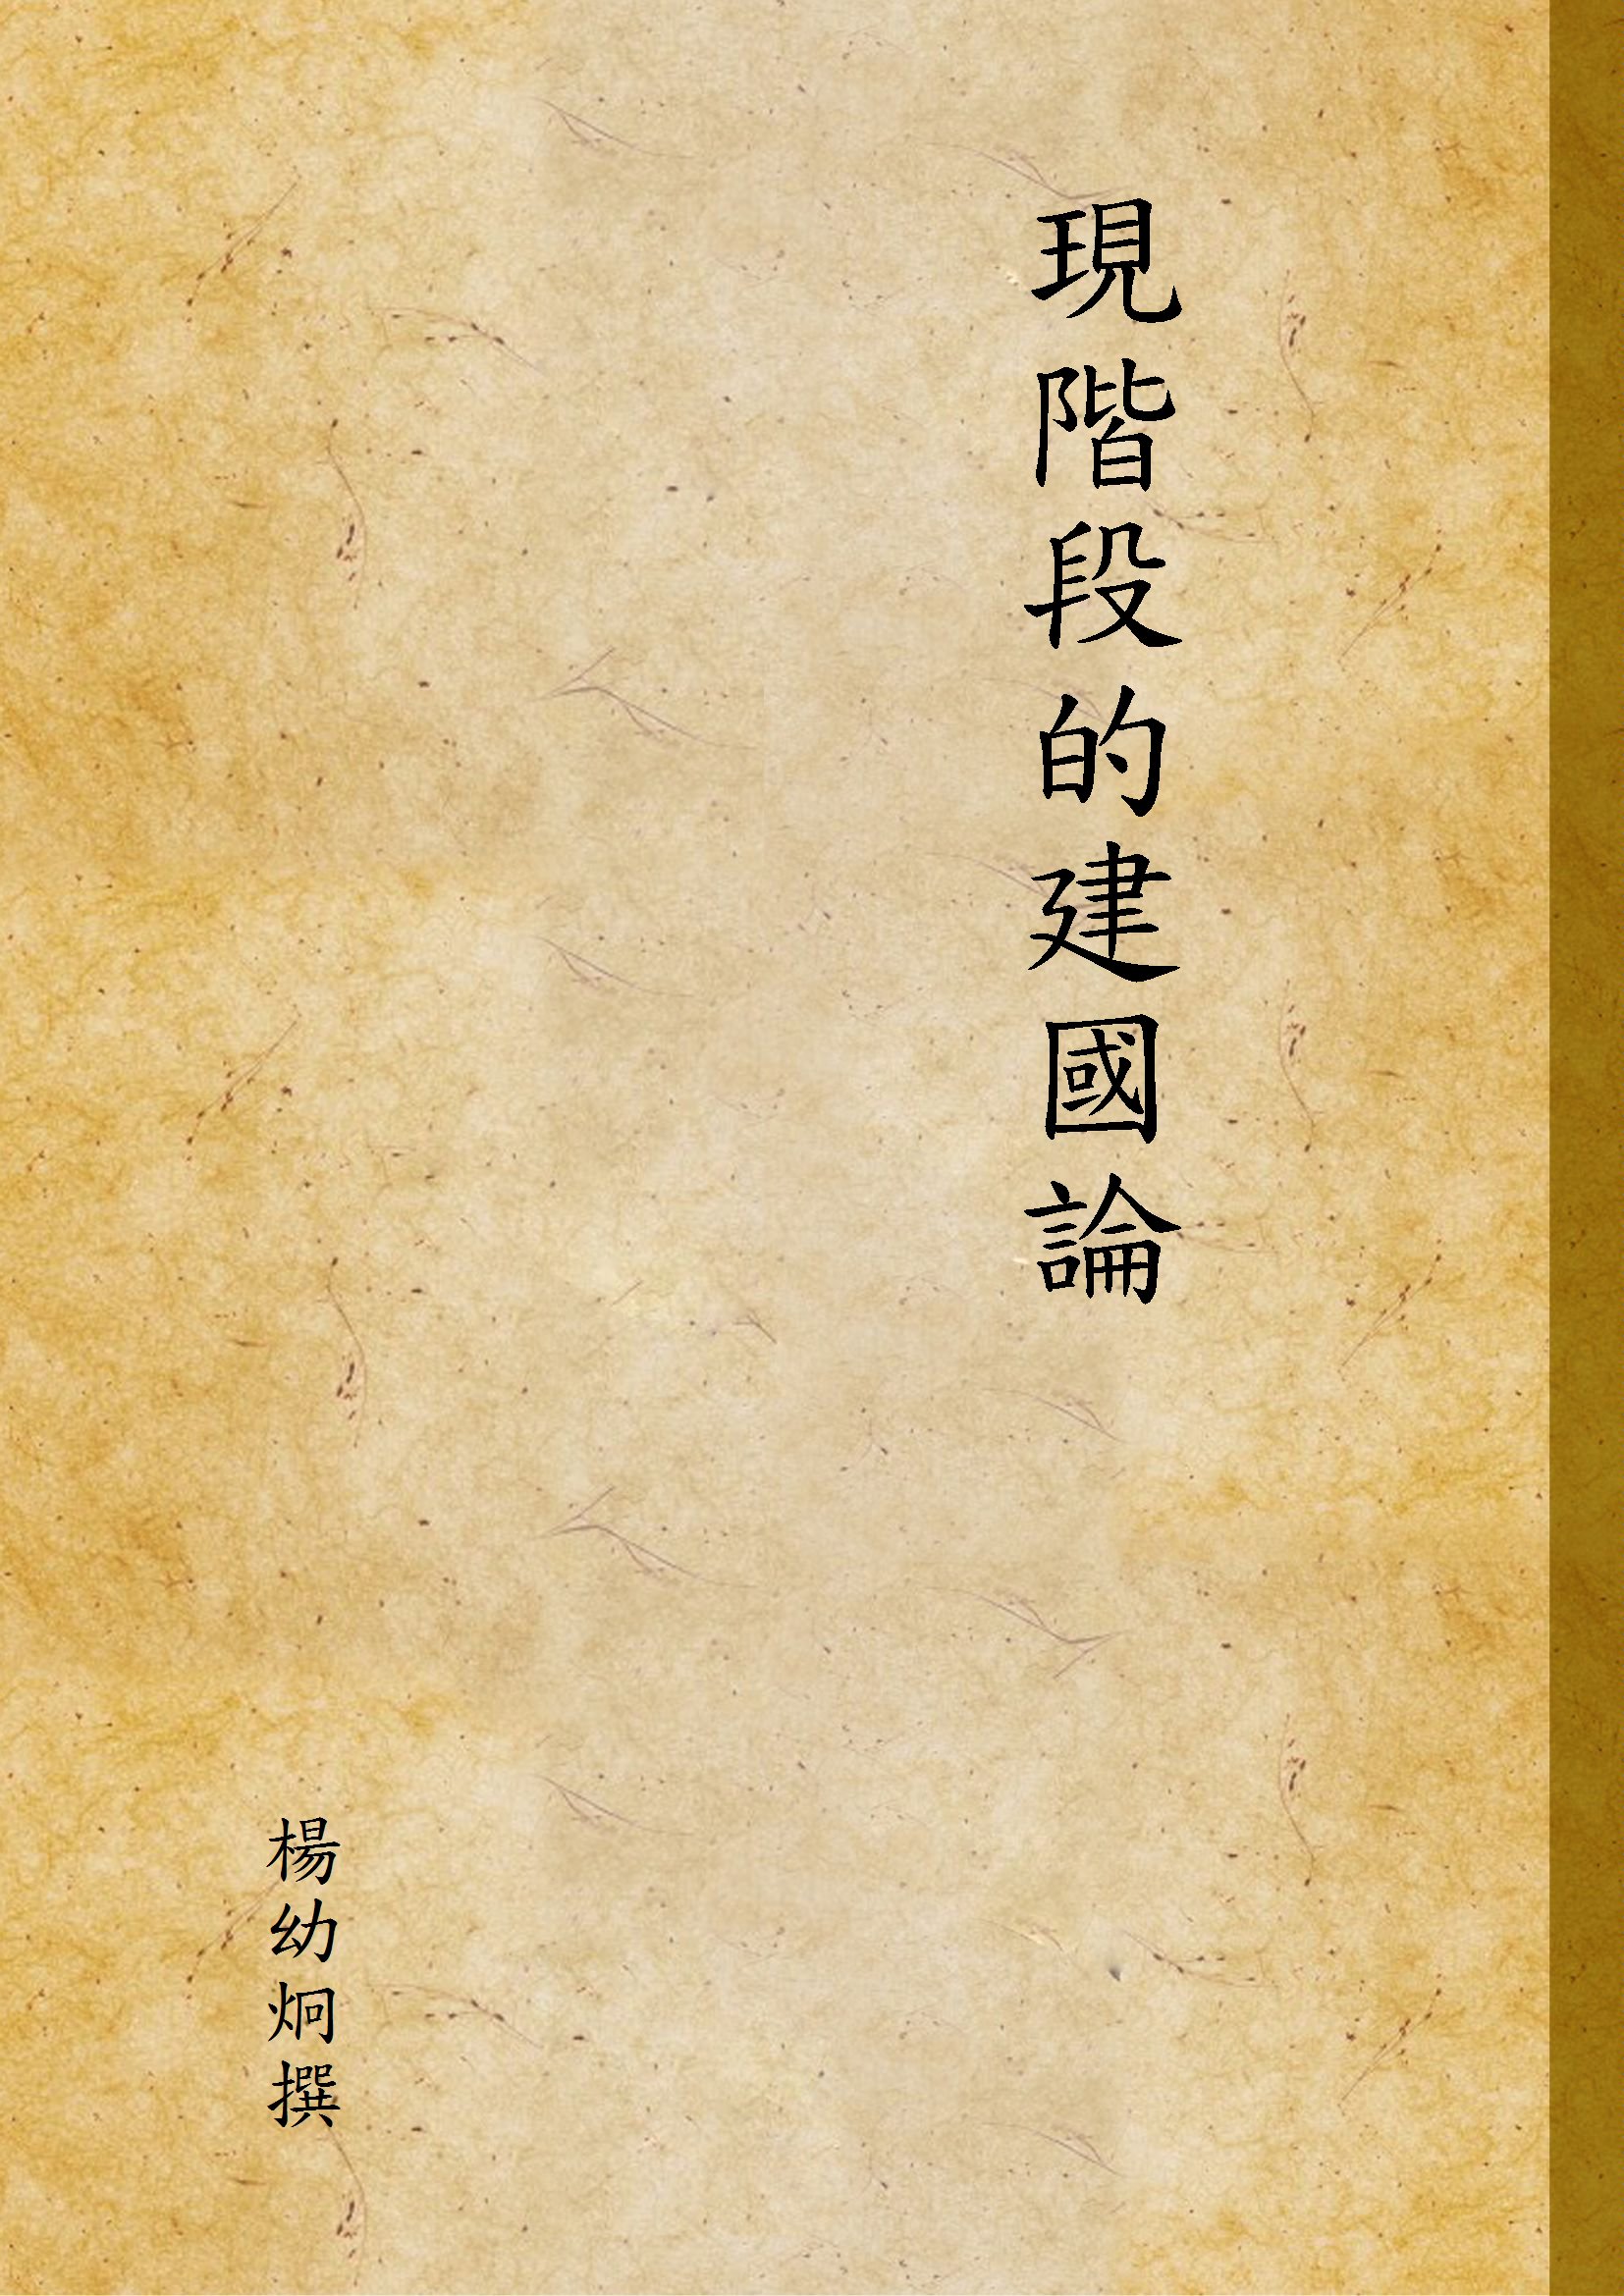 現階段的建國論
楊幼炯撰